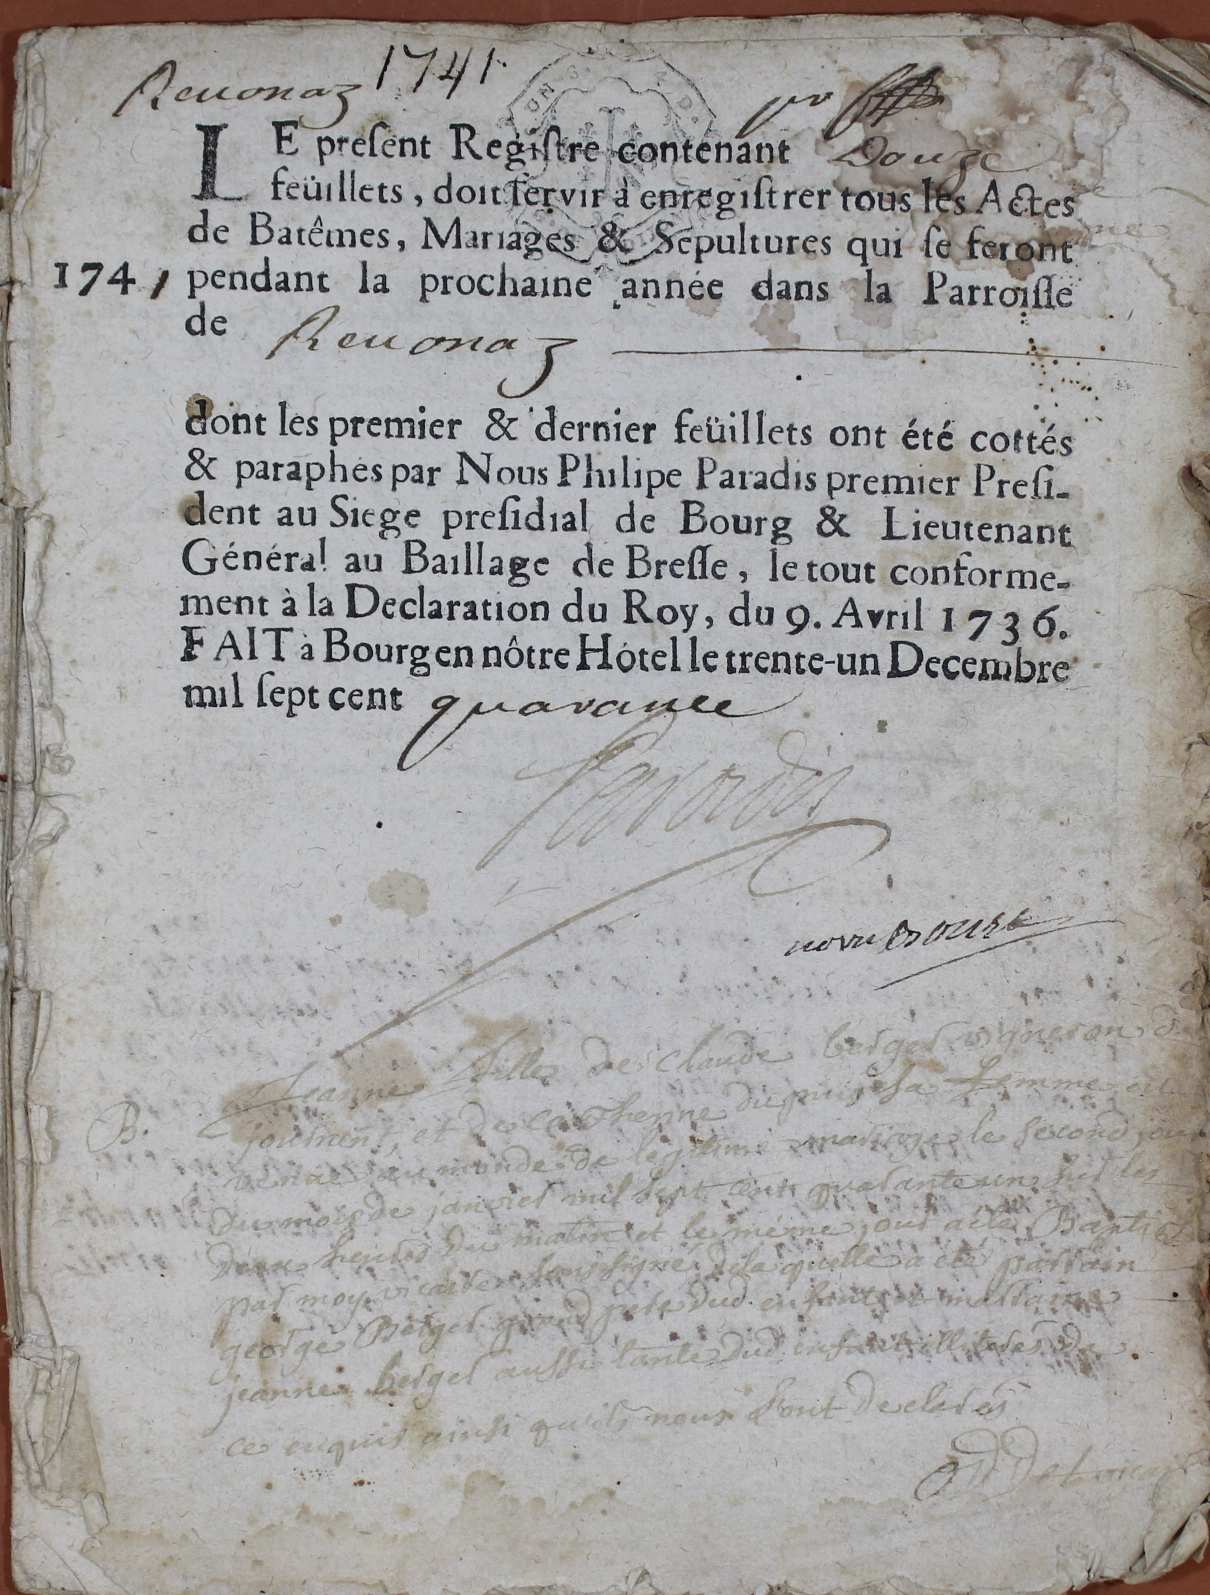 Reuonaz 1741.
LE preſent Regiſtre contenant Douze
feüillets, doit ſervir à enregiſtrer tous les Actes
de Batêmes, Mariages & Sepultures qui ſe feront
1741 pendant la prochaine année dans la Parroiſſe
de Reuonaz
dont les premier & dernier feüillets ont été cottés
& paraphés par Nous Philipe Paradis premier Preſi-
dent au Siege preſidial de Bourg & Lieutenant
Général au Baillage de Breſſe, le tout conforme-
ment à la Declaration du Roy, du 9. Avril 1736.
FAIT à Bourg en nôtre Hôtel le trente-un Decembre
mil ſept cent quarante
Paradis
Jeanne fille de Claude berger vigneron de
B. journens, et de catherine dupuis sa femme est
venue au monde de legitime mariage le second jour
du mois de janvier mil sept cent quarante un sur les
deux heures du matin et le même jour a été Baptisé
par moy vicaire soussigné de laquelle a été parrain
george Berger grand pere dud. enfant et marraine
jeanne berger aussi tante dud. enfant illiteres de
ce enquis ainsi qu'ils nous l'ont declarés